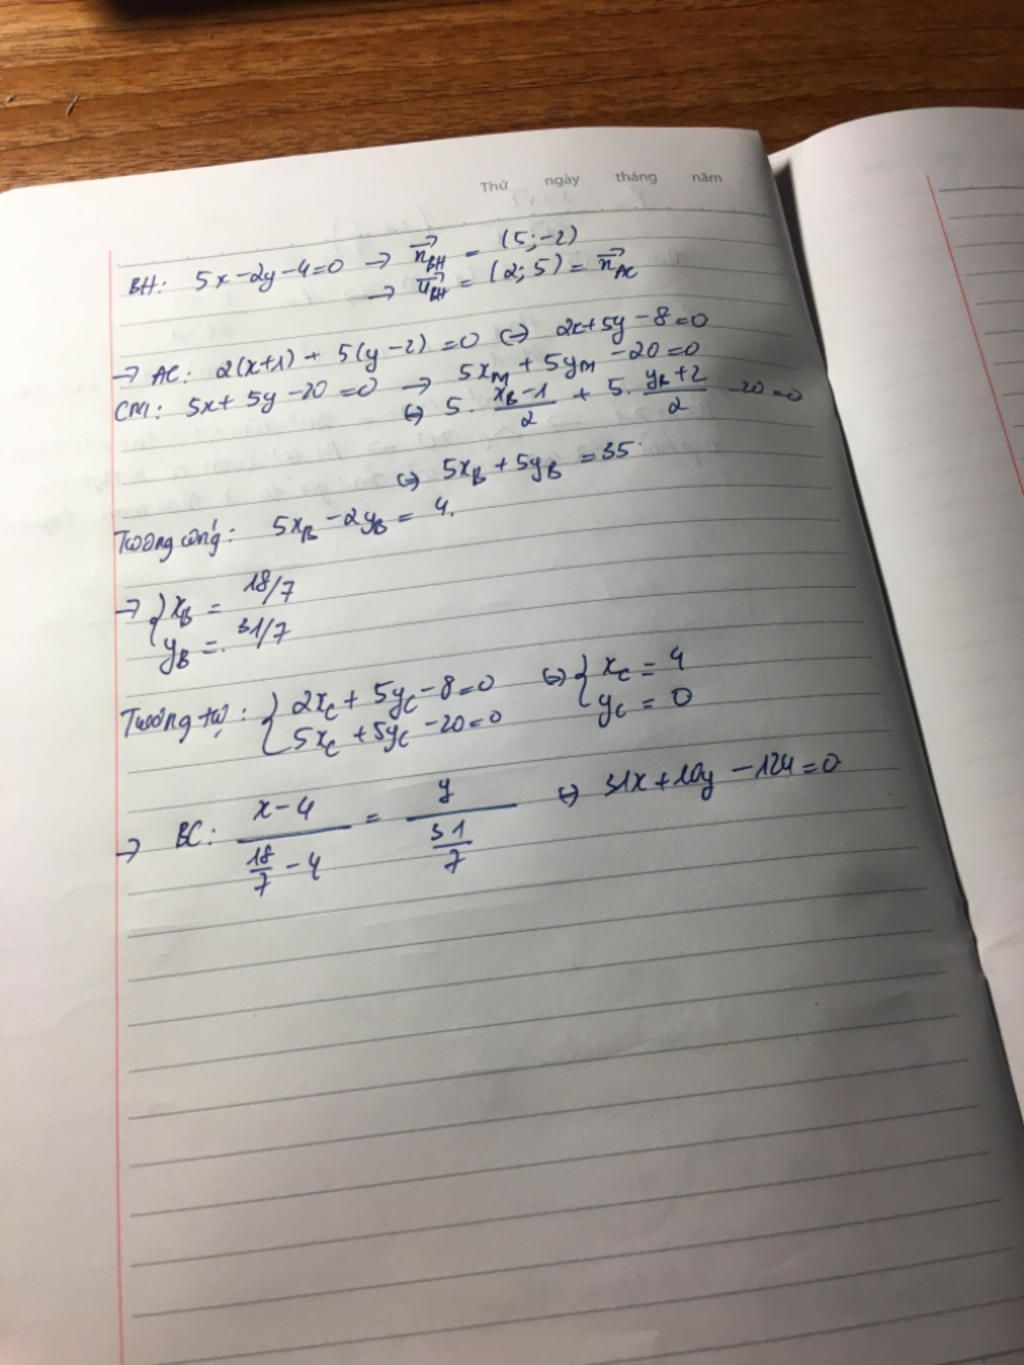 Thứ ngày tháng năm
BH: 5x-2y-4=0 → n⃗_BH = (5;-2)
→ u⃗_BH = (2;5) = n⃗_AC
→ AC: 2(x+1) + 5(y-2) = 0 ⇔ 2x+5y-8=0
CM: 5x+5y-20=0 → 5x_M + 5y_M -20=0
⇔ 5. (x_B-1)/2 + 5. (y_B+2)/2 -20=0
⇔ 5x_B + 5y_B = 35
Tương ứng: 5x_B -2y_B = 4.
→ { x_B = 18/7
y_B = 31/7
Tương tự: { 2x_C + 5y_C -8=0 ⇔ { x_C = 4
5x_C +5y_C -20=0 y_C = 0
→ BC: (x-4)/(18/7 - 4) = y/(31/7) ⇔ 31x+10y-124=0